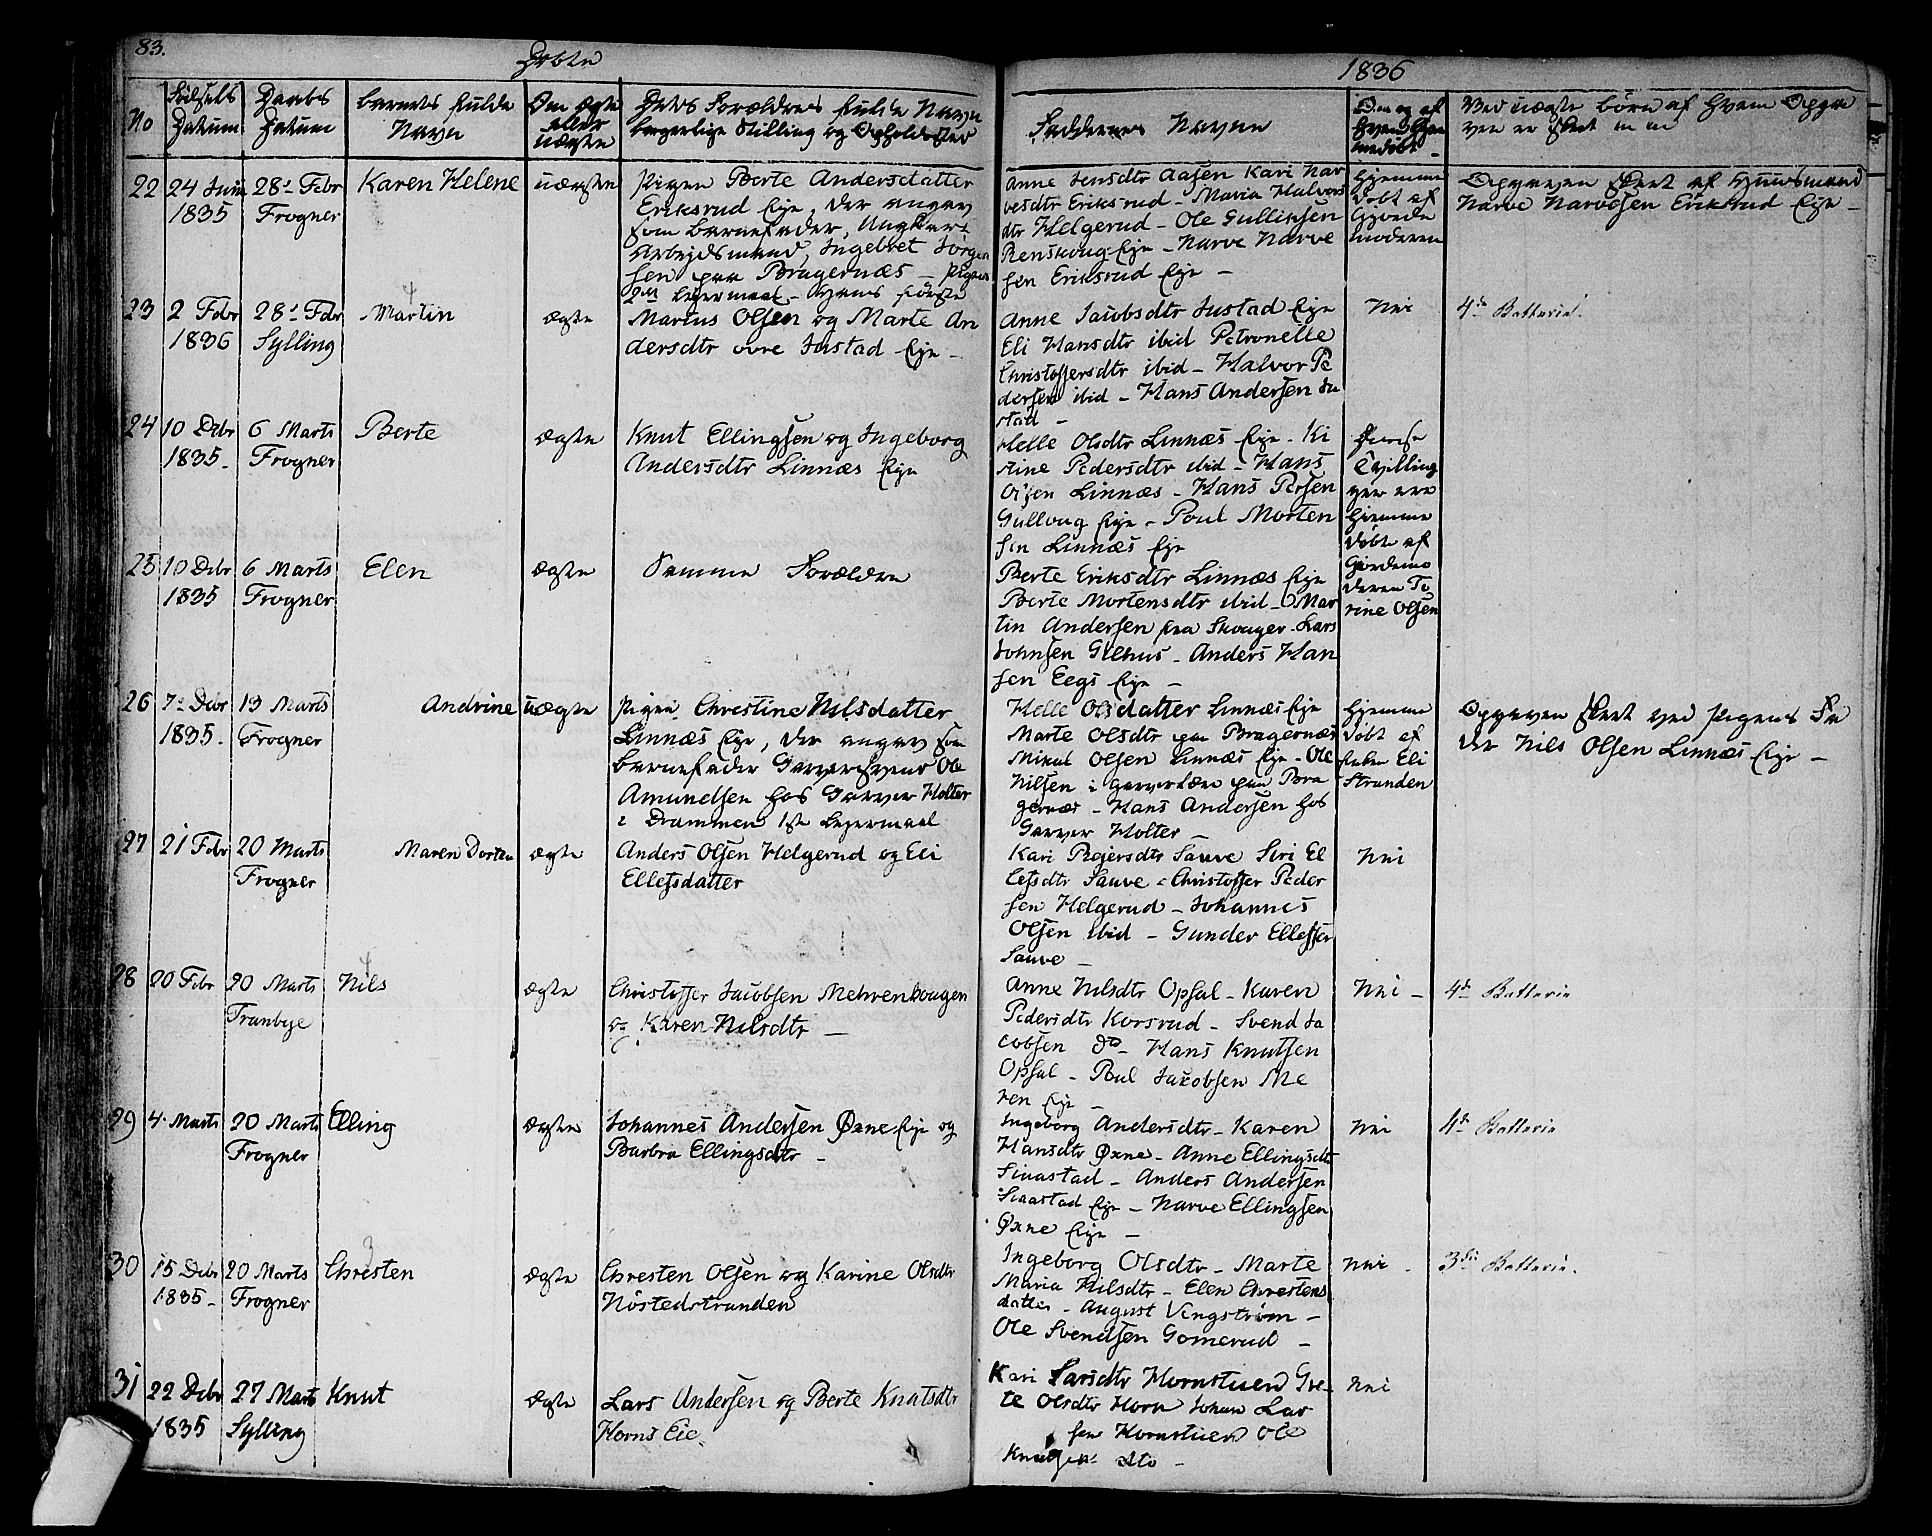 83.
Døbte
1836
No
Fødsels Datum
Daabs Datum
Barnets fulde Navn
Om ægte eller uægte
Dets Forældres fulde Navn
borgerlige Stilling og Opholdsted
Faddernes Navne
Om og af hvem hjemmedøbt
Ved uægte børn af hvem Opgivven er skeet m m
22 24 Juni 1835
28de Febr Frogner
Karen Helene
uægte
Pigen Berte Andersdatter
Eriksrud Eje, der angav
som barnefader, Ungkarl
Arbejdsmand, Ingebret Jørgen
sen paa Bragernæs – Pigens
2det Lejermaal – hans første
Anne Jensdtr Aasen Kari Nar
vesdtr Eriksrud – Maria Halvors
dtr Helgerud – Ole Gulliksen
Renskoug Eje – Narve Narve
sen Eriksrud Eje –
hjemme
døbt af
Gjorde
moderen
Opgiven skeet af Huusmand
Narve Narvesen Eriksrud Eje –
23 2 Febr 1836
28de Febr Sylling
Martin
ægte
Marius Olsen og Marte An
dersdtr øvre Justad Eje –
Anne Jacobsdtr Justad Eje
Eli Hansdtr ibid Petronelle
Christoffersdtr ibid – Halvor Pe
dersen ibid – Hans Andersen Ju
stad –
Nei
4de Batteri.
24 10 Decbr 1835 –
6 Marts Frogner
Berte
ægte
Knut Ellingsen og Ingeborg
Andersdtr Linnæs Eje
Helle Olsdtr Linnæs Eje – Ki
stine Pedersdtr ibid – Hans
Olsen Linnæs – Hans Persen
Gulloug Eje – Poul Morten
sen Linnæs Eje
Disse
Tvilling
ger ere
hjemme
døbt af
Giordemo
deren To
rine Olsen
25 10 Decbr 1835
6 Marts Frogner
Elen
ægte
Samme Forældre
Berte Eriksdtr Linnæs Eje
Berte Mortensdtr ibid – Mar
tin Andersen fra Skouger – Lars
Johnsen Gilhus – Anders Han
sen Eegs Eje –
26 7de Decbr 1835.
13 Marts Frogner
Andrine
uægte
Pigen Christine Nilsdatter
Linnæs Eje, der angav som
barnefader Garversvend Ole
Amundsen hos Garver Holter
i Drammen 1ste Lejermaal
Helle Olsdatter Linnæs Eje
Marte Olsdtr paa Bragernæs
Mikal Olsen Linnæs Eje – Ole
Nilsen i Garverlære paa Bra
gernæs – Hans Andersen hos
Garver Holter –
Hjemme
døbt af
Enken Eli
Stranden
Opgiven skeet ved Pigens Fa
der Nils Olsen Linnæs Eje –
27 21 Febr
20 Marts Frogner
Maren Dortea
ægte
Anders Olsen Helgerud og Eli
Ellefsdatter
Kari Rejersdtr Sauve Siri El
lefsdtr Sauve – Christoffer Peder
sen Helgerud – Johannes
Olsen ibid – Gunder Ellefsen
Sauve –
Nei
28 20 Febr
20 Marts Tranbye
Nils
ægte
Christoffer Jacobsen Mehrenskougen
og Karen Nilsdtr –
Anne Nilsdtr Opsal – Karen
Pedersdtr Korsrud – Svend Ja
cobsen do – Hans Knutsen
Opsal – Poul Jacobsen Me
ren Eje –
Nei –
4de Batteri
29 4. Marts
20 Marts Frogner
Elling
ægte
Johannes Andersen Øxne Eje og
Barbra Ellingsdtr –
Ingeborg Andersdtr – Karen
Hansdtr Øxne – Anne Ellingsdtr
Siaastad – Anders Andersen
Siaastad Eje – Narve Ellingsen
Øxne Eje –
Nei
4de Batteri
30 15 Decbr 1835 –
20 Marts Frogner
Chresten
ægte
Chresten Olsen og Karine Olsdtr
Nøstedstranden
Ingeborg Olsdtr – Marte
Maria Nilsdtr – Elen Chrestens
datter – August Vengstrøm –
Ole Svendsen Gomerud –
Nei –
3die Batteri.
31 22 Decbr 1835
27 Marts Sylling
Knut
ægte
Lars Andersen og Berte Knutsdtr
Horns Eie.
Kari Larsdtr Hornstuen Gre
te Olsdtr Horn Johan Lar
sen Hornstuen Ole
Knutsen dto –
Nei